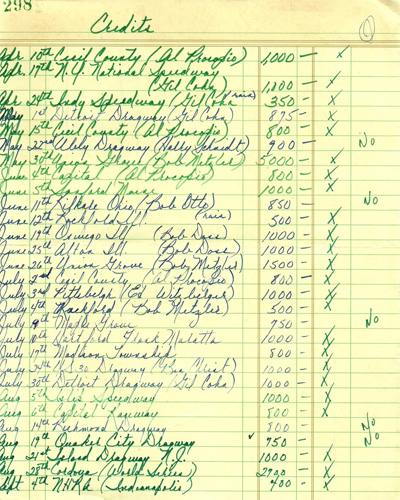 298
Credits 1
Apr. 10th Cecil County (Al Procopio) 1,000 — x
Apr. 17th N.Y. National Speedway
(Gil Cohn) 1,200 — x
Apr 24th Indy Speedway (Gil Cohn rain) 350 — x
May 1st Detroit Dragway (Gil Cohn) 875 — x
May 15th Cecil County (Al Procopio) 800 — x
May 22nd Dragway 900 — No
May 30th Union Grove (Bob Metzler) 5000 — x
June 4th Capitol (Al Procopio) 800 — x
June 5th Sanford Maine 1000 — x
June 11th Ohio (Bob Otto) 850 — No
June 12th Rockford Ill. (rain) 500 — x
June 19th Oswego Ill (Bob Doss) 1000 — x
June 25th Alton Ill. (Bob Doss) 1000 — x
June 26th Union Grove (Bob Metzler) 1500 — x
July 2nd Cecil County (Al Procopio) 800 — x
July 3rd Pittsburgh (Ed) 1000 — x
July 4th Rockford (Bob Metzler) 500 — x
July 9th Maple Grove 750 — No
July 10th 1000 — x
July 17th Madison Township 800 — x
July 24th U.S. 30 Dragway 1000 — x
July 30th Detroit Dragway (Gil Cohn) 1000 — x
Aug 5th Speedway 1000 — x
Aug 6th Capitol Raceway 800 — x
Aug 14th Richmond Dragway 800 — No
Aug 19th Quaker City Dragway ✓ 750 — No
Aug 21st Island Dragway N.J. 1000 — x
Aug 28th Cordova (World Series) 2700 — x
Sept 4th NHRA (Indianapolis) 400 — x